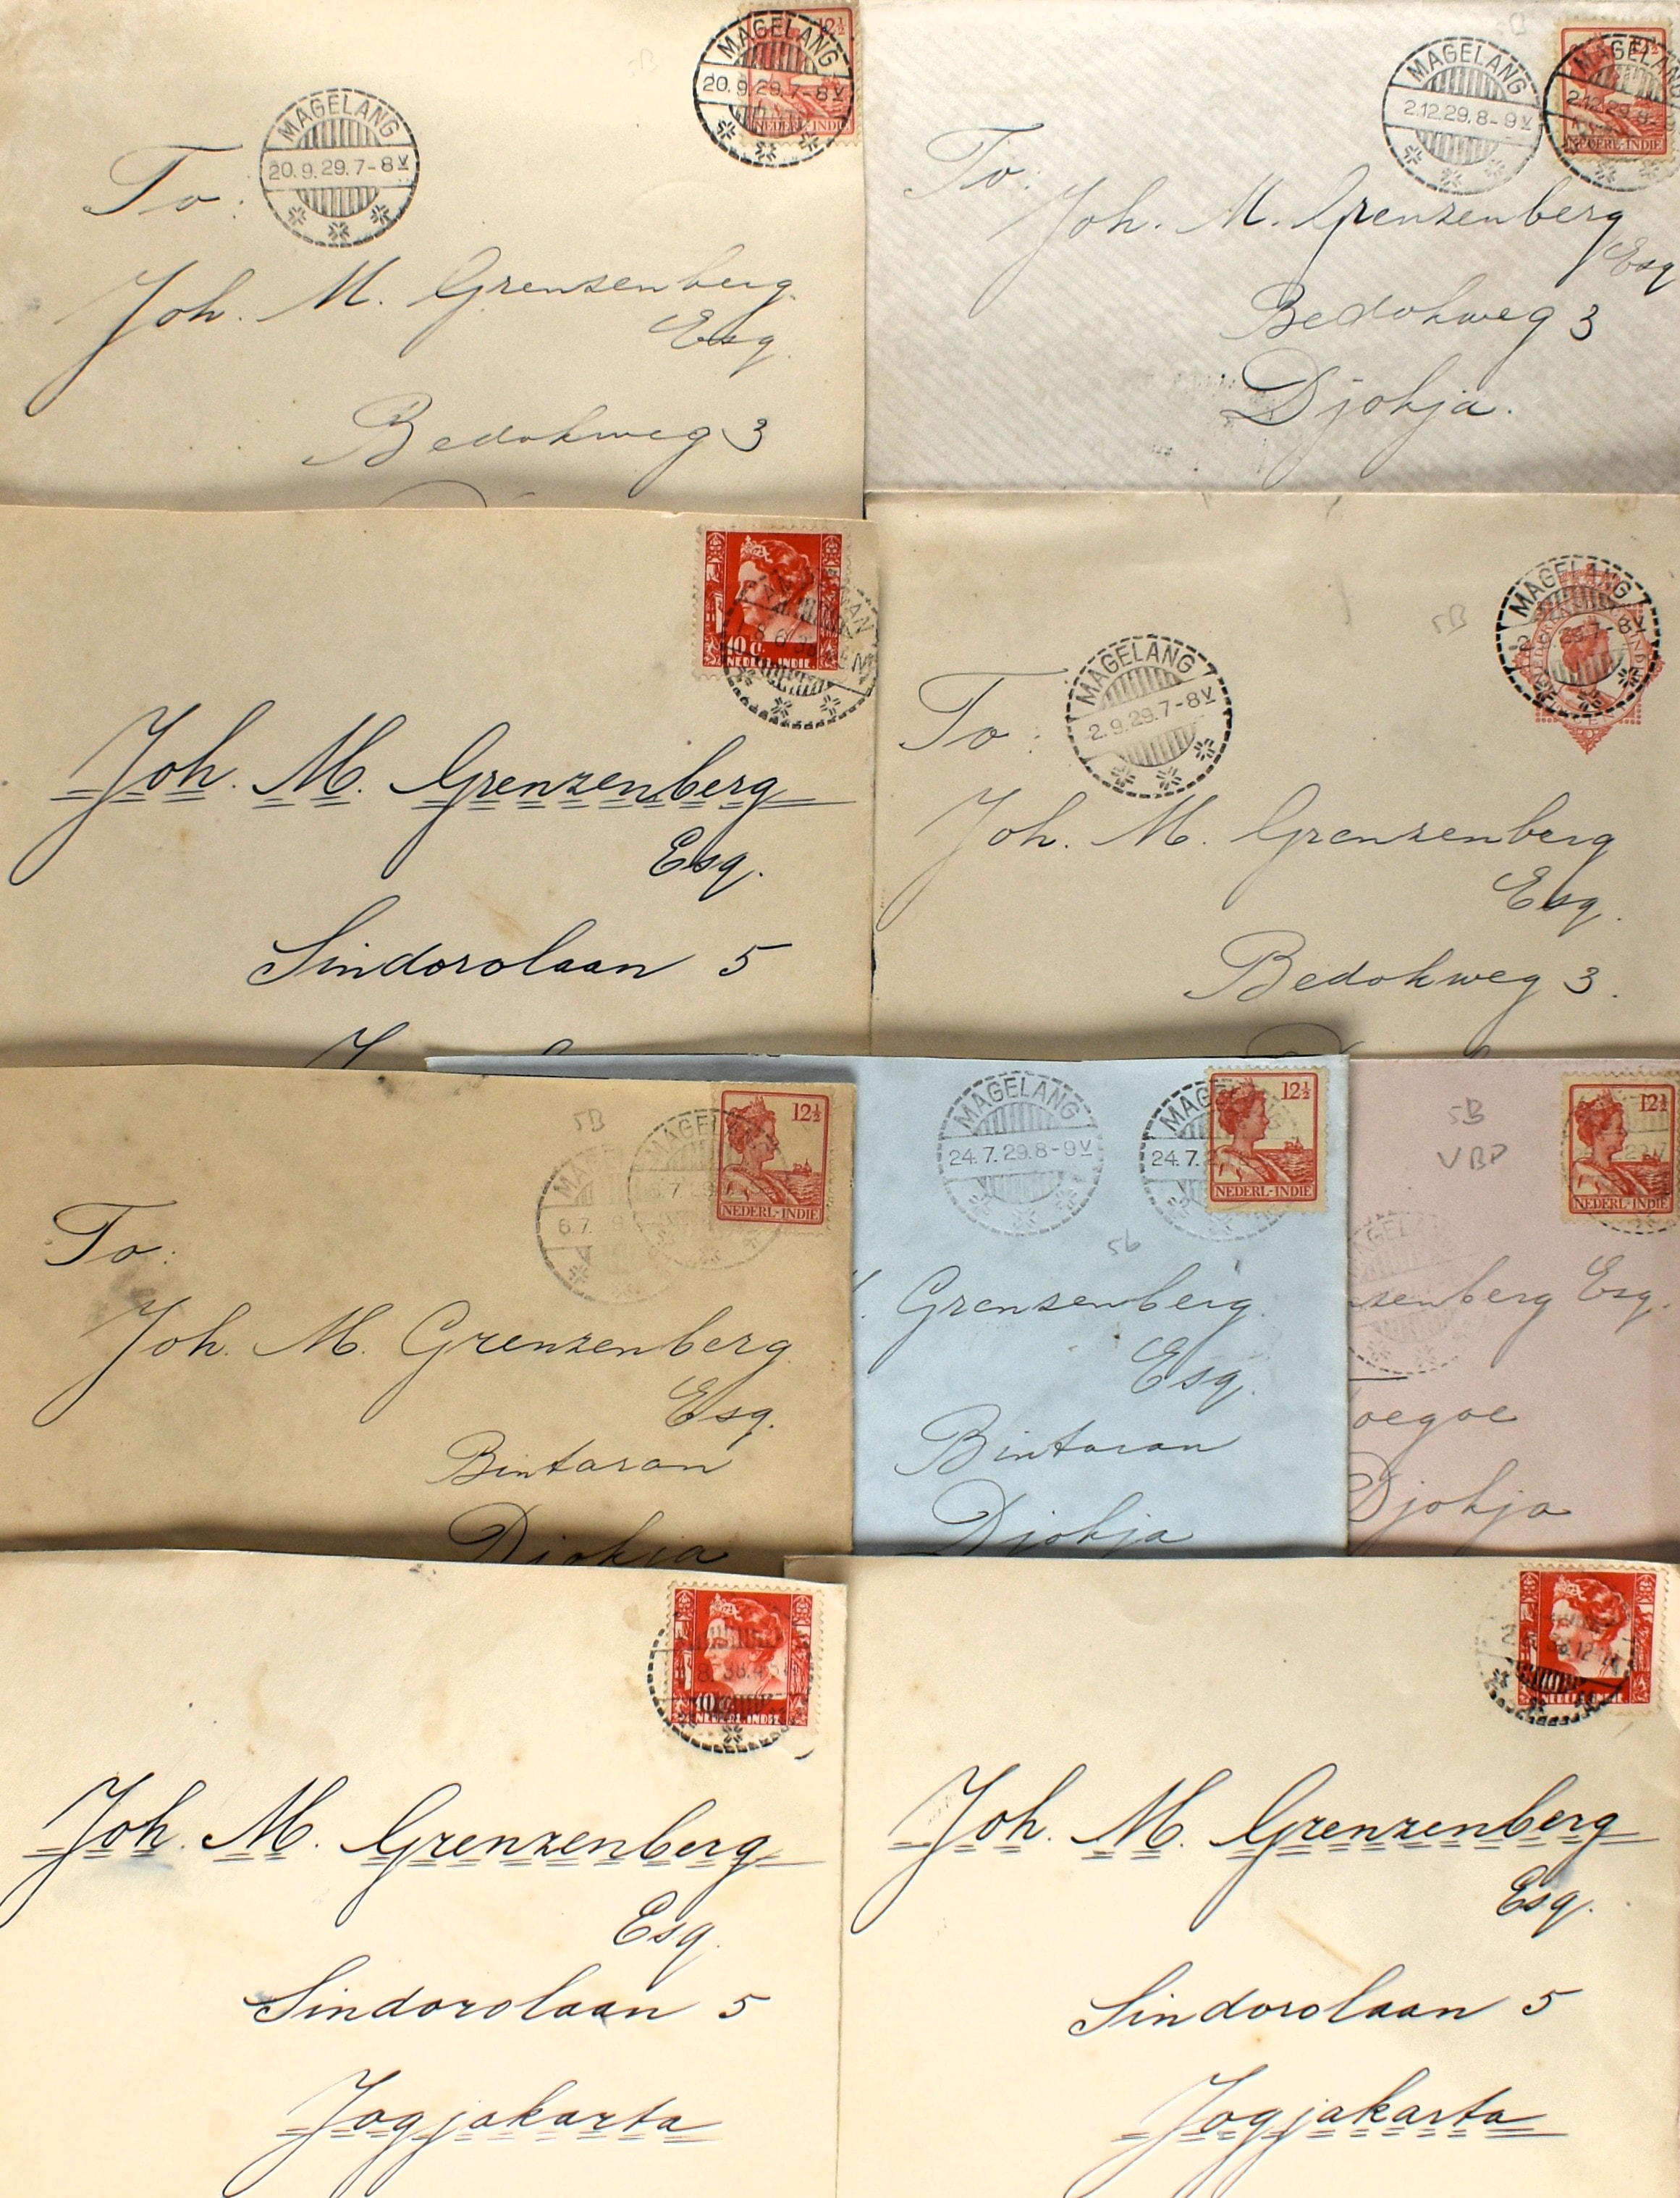 MAGELANG
20.9.29.7-8V
MAGELANG
20.9.29.7-8V
12½
NEDERL-INDIE
To:
Joh. M. Grenzenberg
Esq.
Bedokweg 3
MAGELANG
2.12.29.8-9V
MAGELANG
2.12.29.8-
NEDERL-INDIE
To:
Joh. M. Grenzenberg
Esq
Bedokweg 3
Djokja.
10 C.
NEDERL. INDIE
Joh. M. Grenzenberg
Esq.
Sindorolaan 5
5B
MAGELANG
2.9.29.7-8V
MAGELANG
7-8V
To:
Joh. M. Grenzenberg
Esq.
Bedokweg 3.
5B
MAGELANG
6.7.
12½
NEDERL-INDIE
To:
Joh. M. Grenzenberg
Esq.
Bintaran
Djokja
MAGELANG
24.7.29.8-9V
MAG
24.7.2
12½
NEDERL-INDIE
5b
Grenzenberg
Esq.
Bintaran
Djokja
5B
VBP
12½
NEDERL-INDIE
zenberg Esq.
oegoe
Djokja
10
NEDERL. INDIE
Joh. M. Grenzenberg
Esq.
Sindorolaan 5
Jogjakarta
Joh. M. Grenzenberg
Esq.
Sindorolaan 5
Jogjakarta